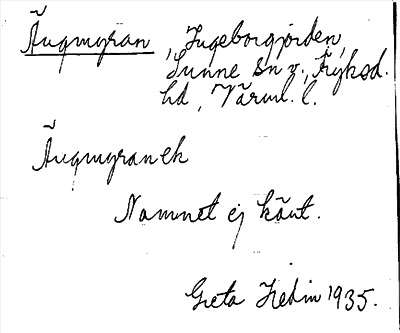 Ängmyran, Ingeborgjorden,
Sunne sn v., Fryksd.
hd, Värml. l.
Ängmyran ek
Namnet ej känt.
Greta Hedin 1935.